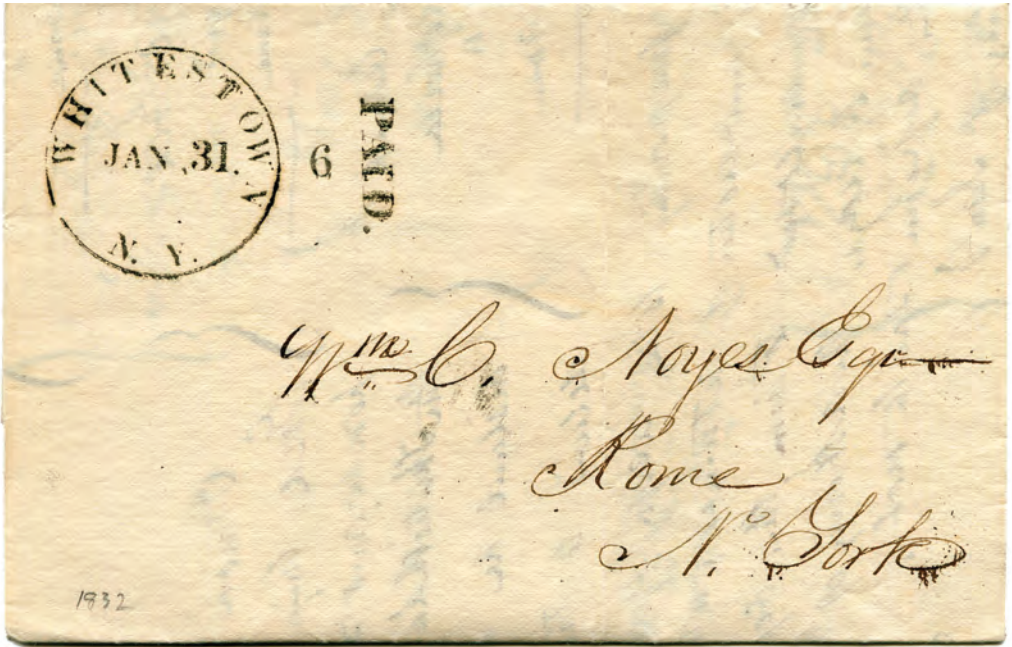 WHITESTOWN
JAN. 31.
N. Y.
6
PAID.
Wm C. Noyes Esqr
Rome
N. York
1832